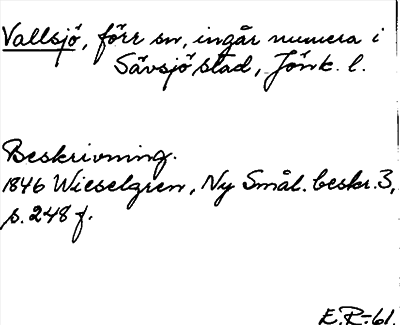 Vallsjö, förr sn, ingår numera i
Sävsjö stad, Jönk. l.
Beskrivning.
1846 Wieselgren, Ny Smål. beskr. 3,
s. 248 f.
E.R-61.